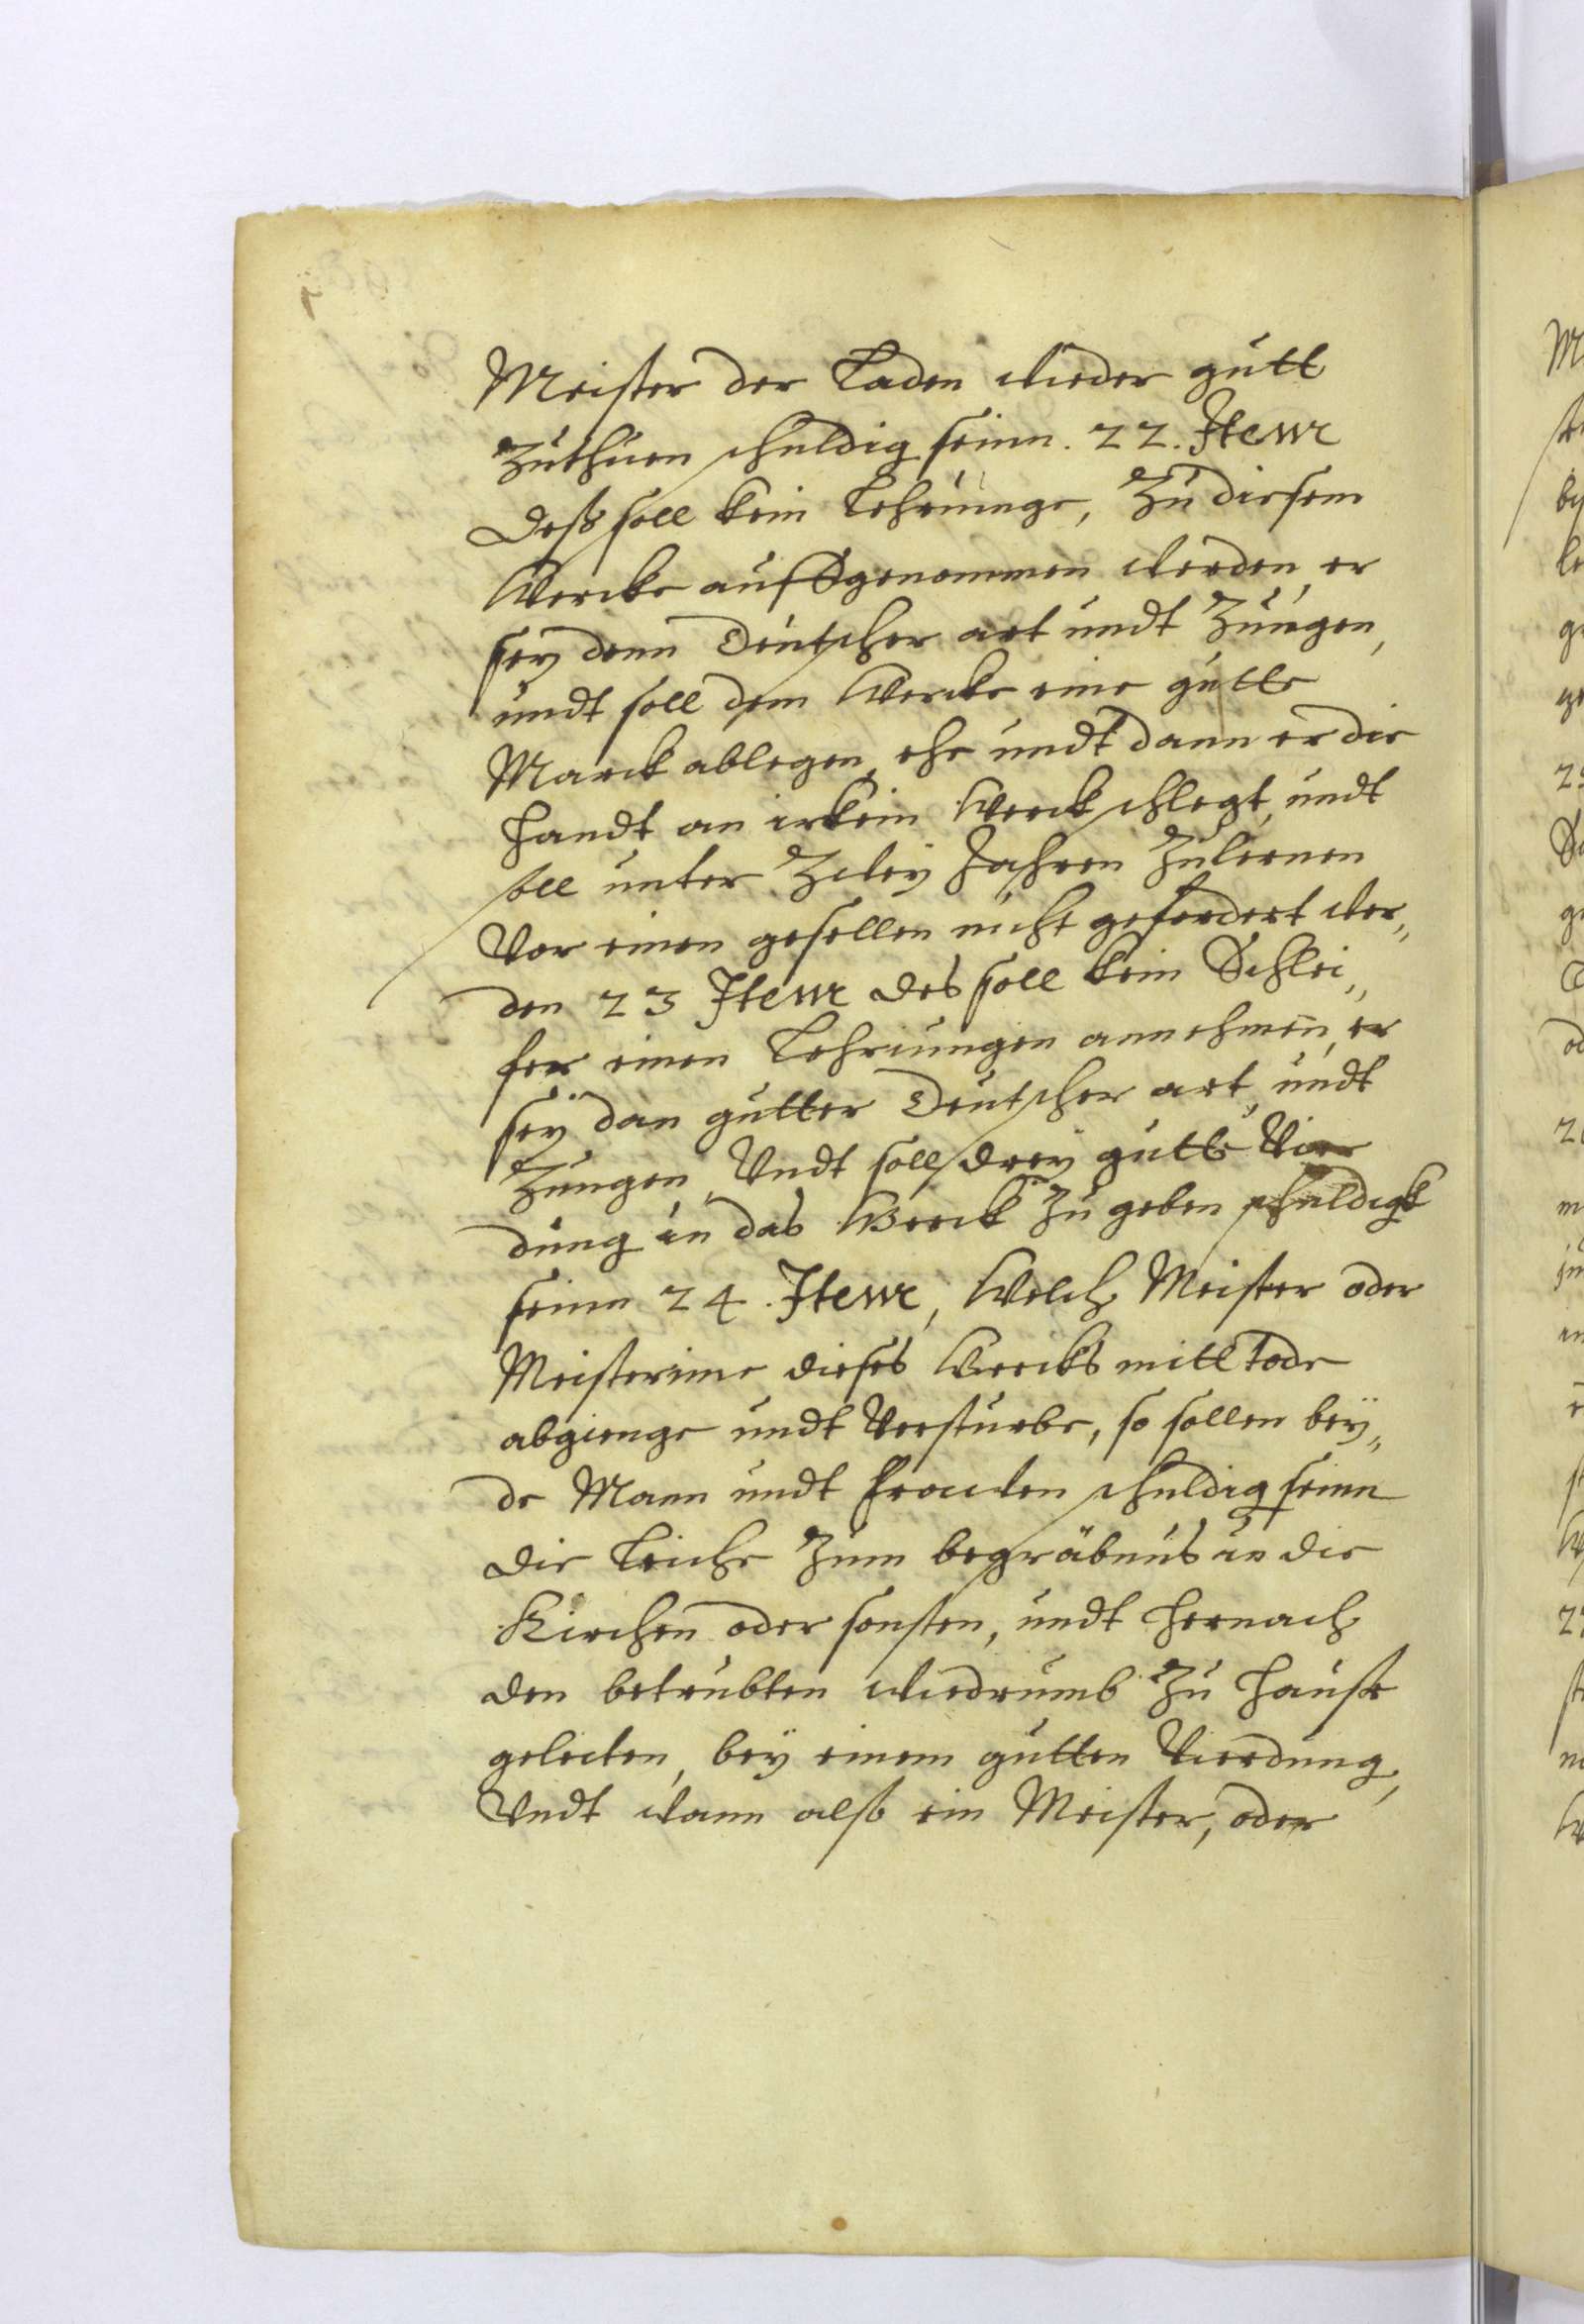 Meister der Laden wieder gutt
zuthuen schuldig seinn. 22. Item
deß soll kein Lehriunge, zu diesem
Wercke auffgenommen werden, er
sey denn deutscher art undt Zungen,
undt soll dem Wercke eine gutte
Marck ablegen, ehe undt dann er die
handt an irkein Werck schlegt, undt
soll unter zwey Jahren zulernen
Vor einen gesellen nicht gefordert wer„
den 23 Item des soll kein Schlei„
fer einen Lehriungen annehmen, er
sey dan gutter deutscher art, undt
Zungen, Undt soll drey gutte Vier
dung in das Werck zu geben schuldigk
seinn 24. Item, Welch Meister oder
Meisterinne dieses Wercks mitt tode
abgienge undt Versturbe, so sollen bey„
de Mann undt frawen schuldig seinn
die Leiche zum begräbnus in die
Kirchen oder sonsten, undt hernach
den betrubten wiedrumb zu hauße
geleiten, bey einem gutten Vierdung,
Undt wann alß ein Meister, oder